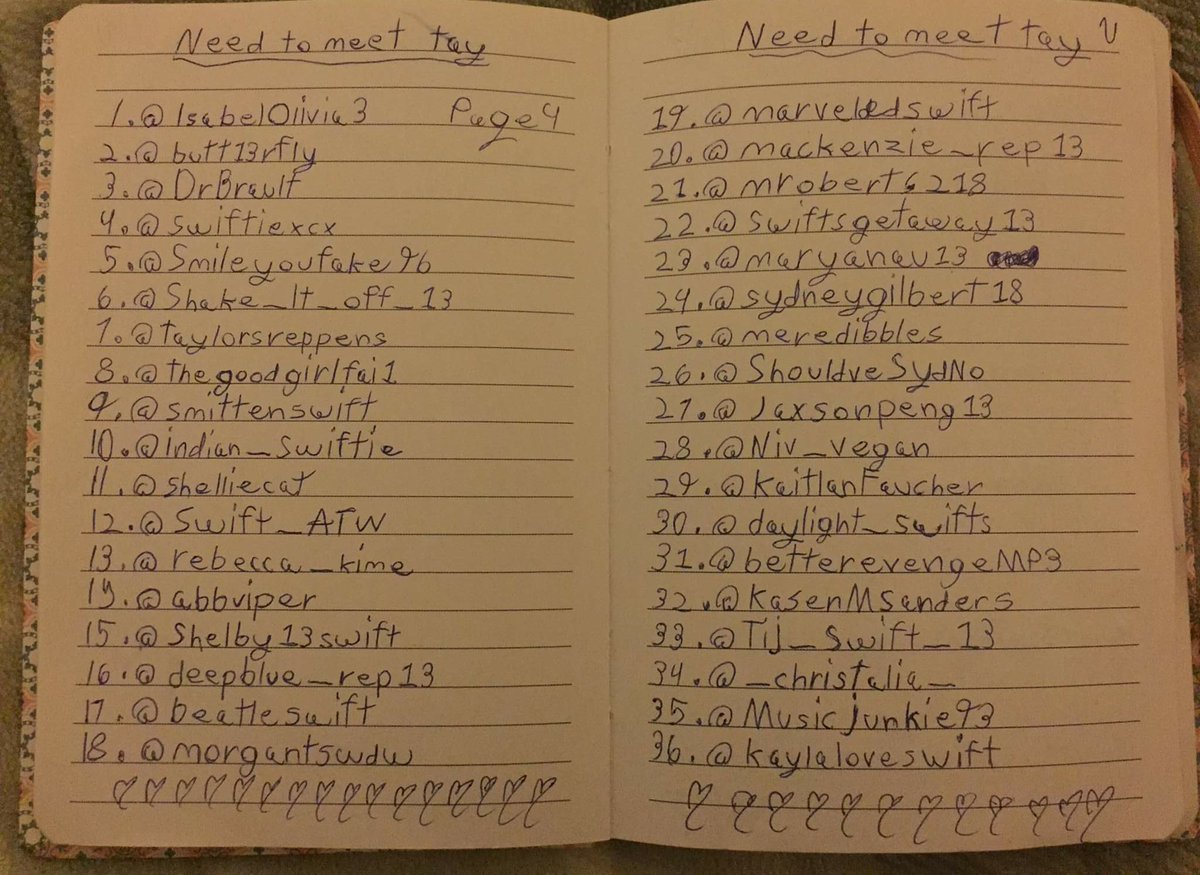 Need to meet tay
1. @IsabelOlivia3 Page 4
2. @butt13rfly
3. @DrBrault
4. @swiftiexcx
5. @Smileyoufake96
6. @Shake_It_off_13
7. @taylorsreppens
8. @thegoodgirlfai1
9. @smittenswift
10. @indian_swiftie
11. @shelliecat
12. @Swift_ATW
13. @rebecca_kime
14. @abbviper
15. @Shelby13swift
16. @deepblue_rep13
17. @beatleswift
18. @morgantswdw
Need to meet tay
19. @marveledswift
20. @mackenzie_rep13
21. @mrobert6218
22. @swiftsgetaway13
23. @maryanav13
24. @sydneygilbert18
25. @meredibbles
26. @ShouldveSydNo
27. @Jaxsonpeng13
28. @Niv_vegan
29. @KaitlanFaucher
30. @daylight_swifts
31. @betterevengeMP3
32. @KasenMSanders
33. @Tij_Swift_13
34. @_christalia_
35. @Musicjunkie93
36. @kaylaloveswift